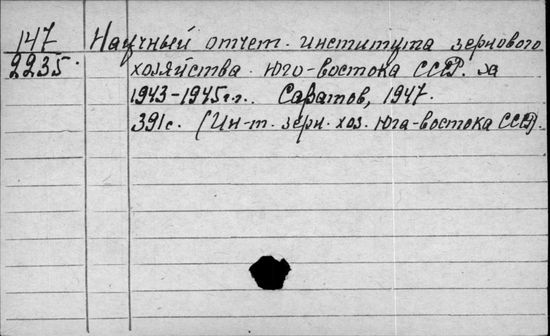 147 Научный отчет института зернового
2235 хозяйства Юго-востока СССР. за
1943-1945г.г. Саратов, 1947.
391с. (Ин-т. зерн. хоз. Юга-востока СССР).